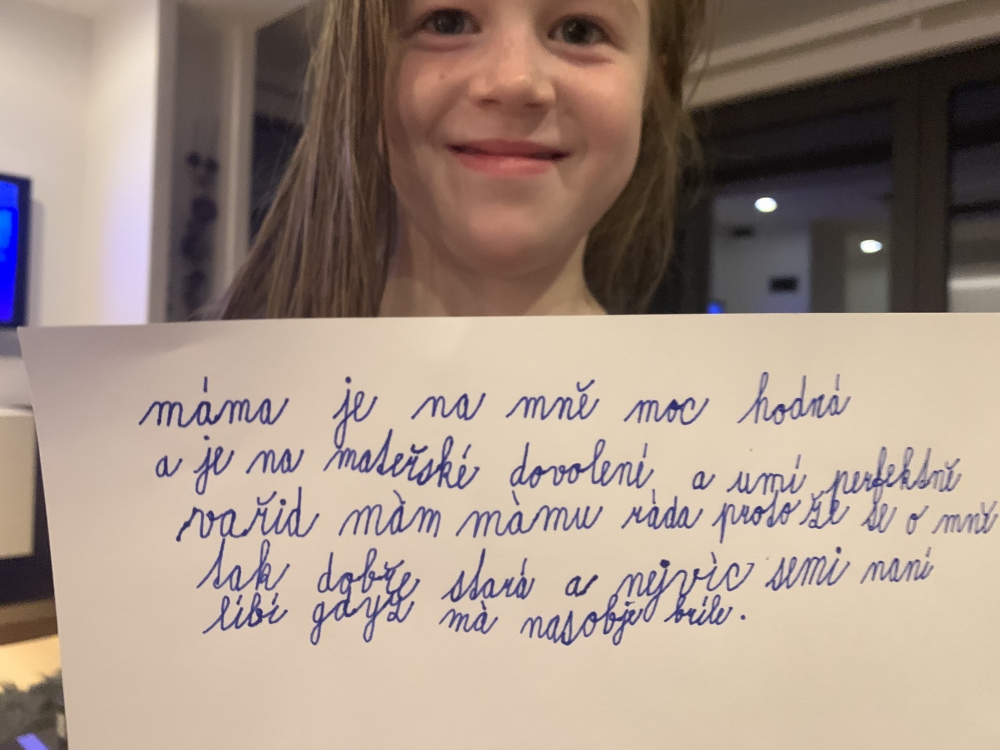 máma je na mně moc hodná
a je na mateřské dovolené a umí perfektně
vařid màm màmu ràda proto že se o mně
tak dobře stará a nejvìc semi naní
líbí gdyž mà nasobje bríle.